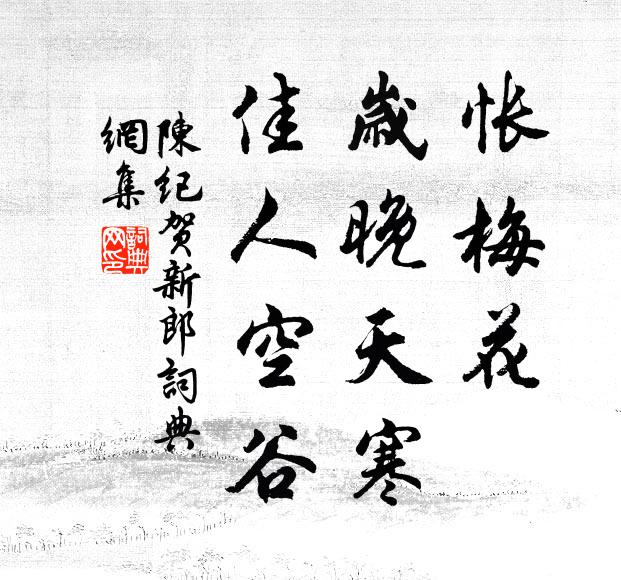 怅梅花
歲晚天寒
佳人空谷
陳纪贺新郎詞典
網集
詞典
网印